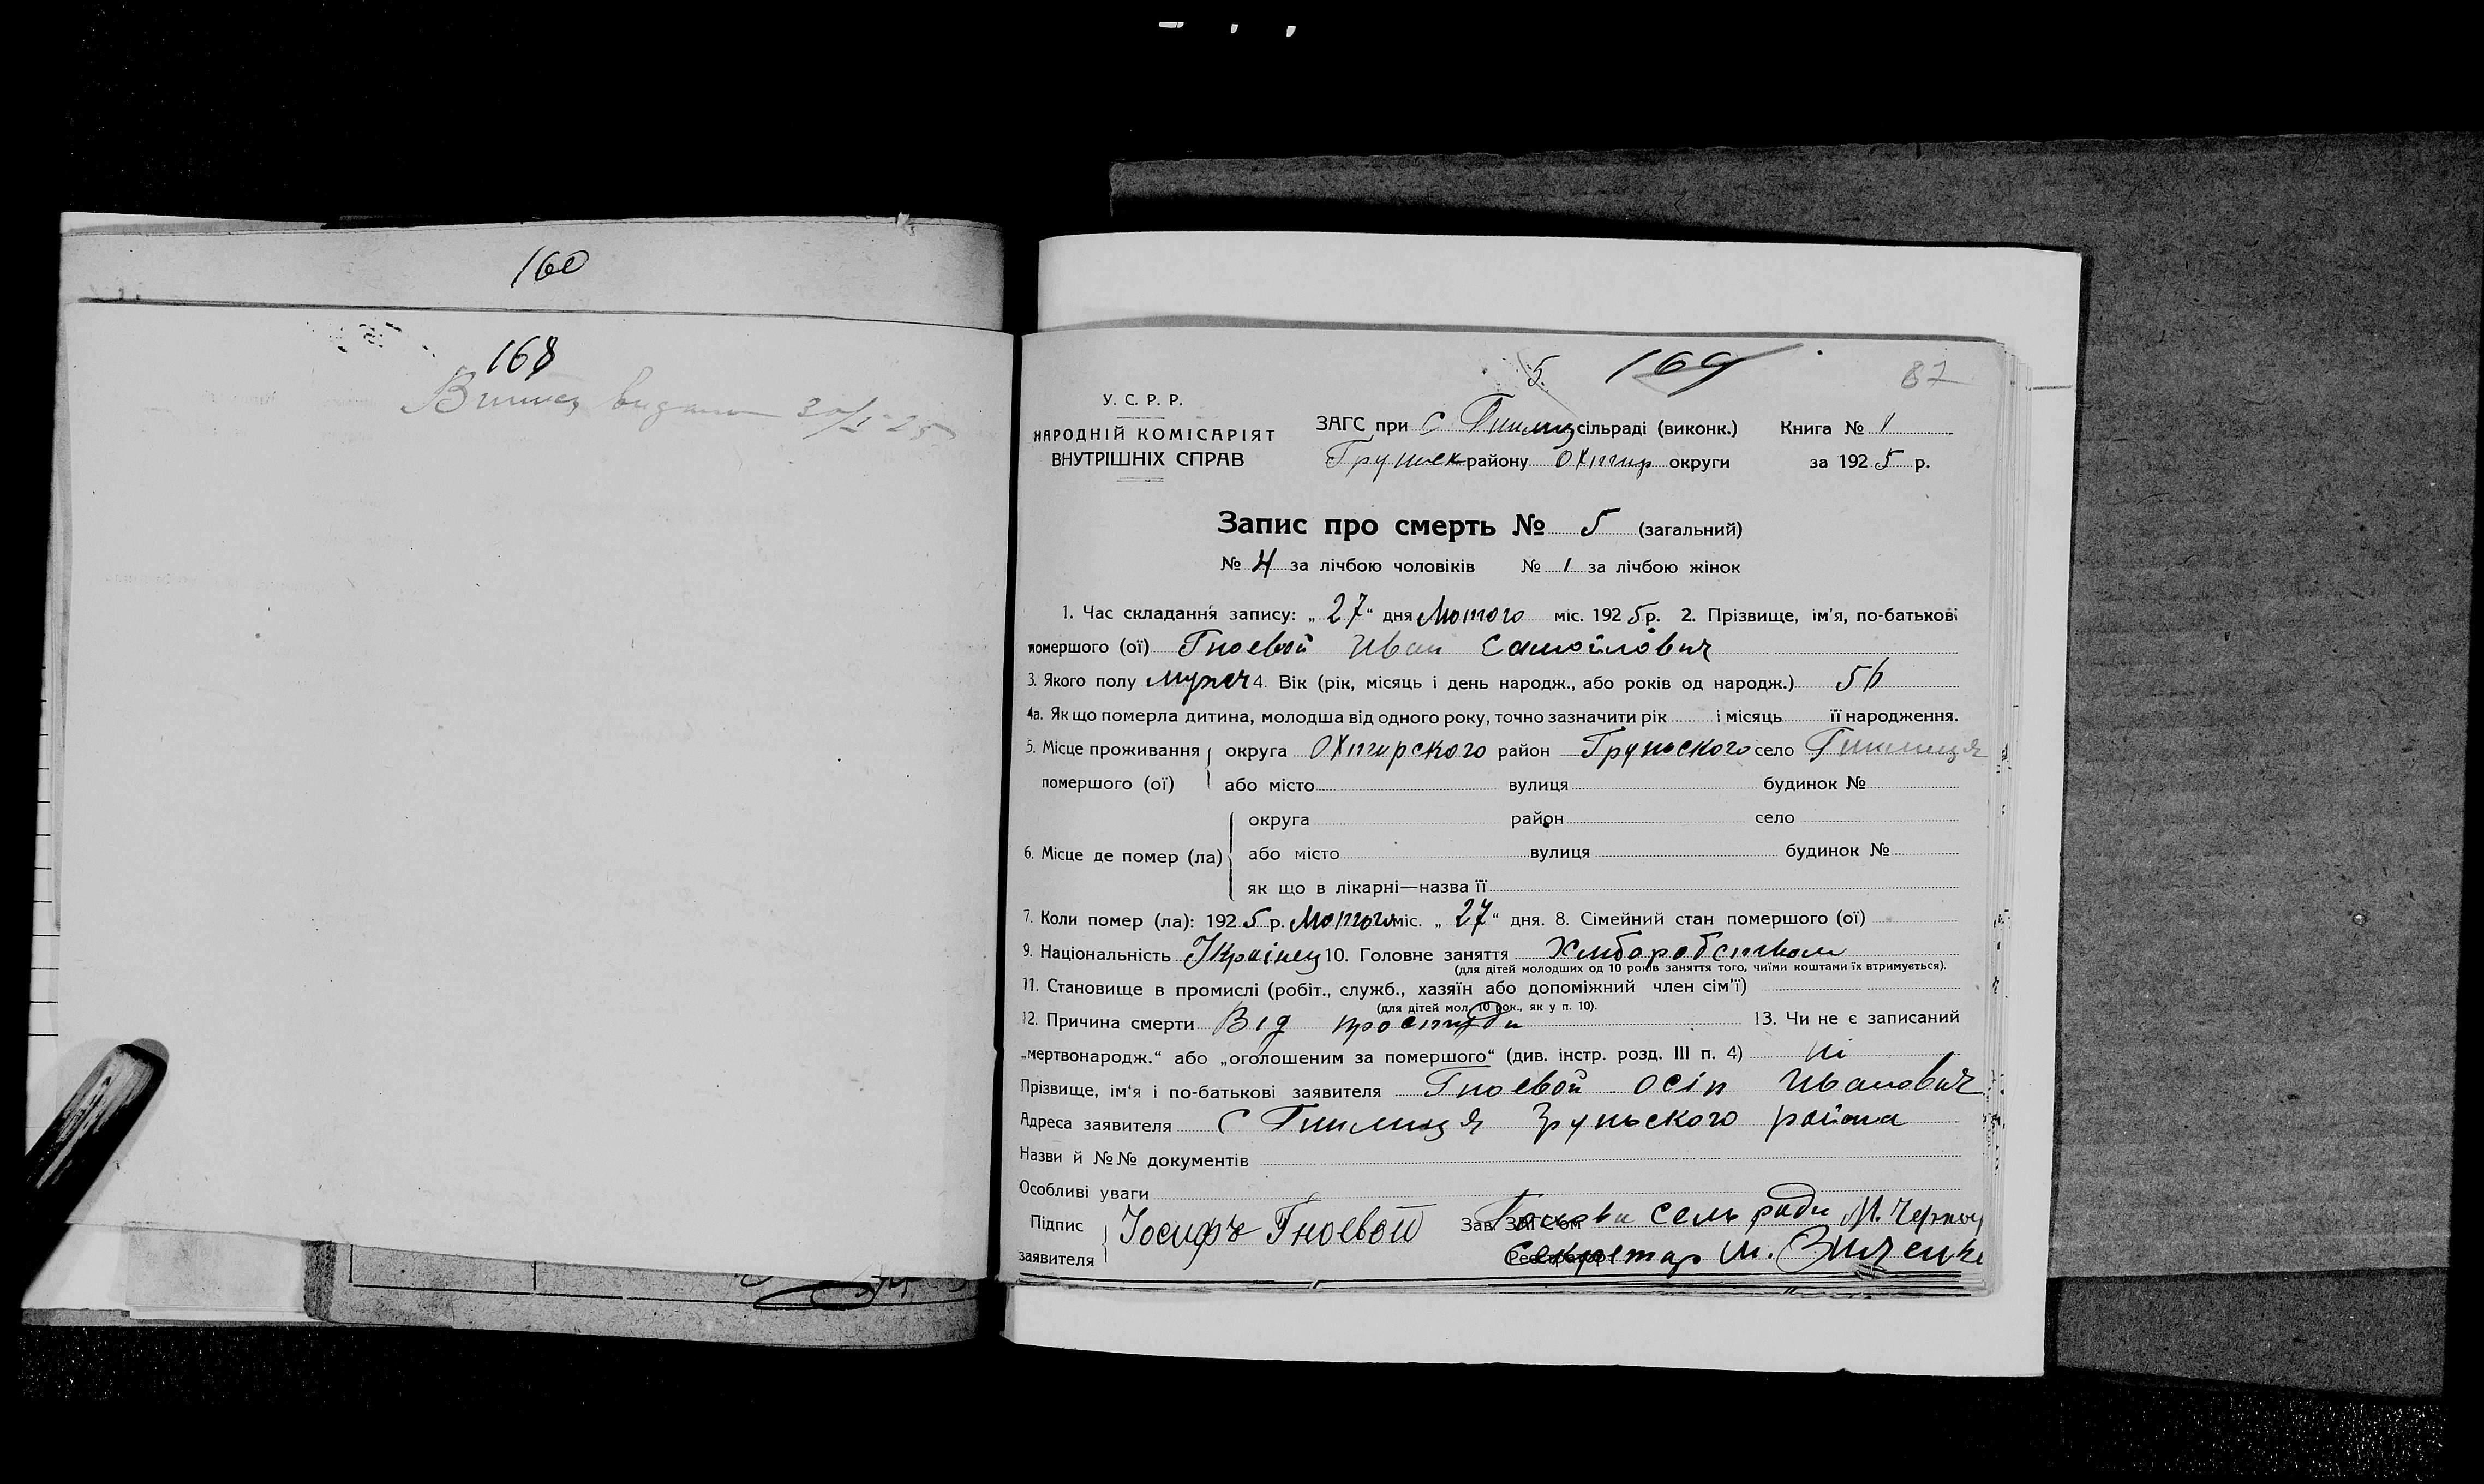 160
168
видано 30/I 25
5. 169 87
У. С. Р. Р.
НАРОДНІЙ КОМІСАРІЯТ
ВНУТРІШНІХ СПРАВ
ЗАГС при С сільраді (виконк.) Книга № 1
Груньск району Охтир округи за 1925 р.
Запис про смерть № 5 (загальний)
№ 4 за лічбою чоловіків № 1 за лічбою жінок
1. Час складання запису: „27“ дня Лютого міс. 1925 р. 2. Прізвище, ім'я, по-батькові
помершого (ої) Гноевой Иван Самойлович
3. Якого полу мужеч 4. Вік (рік, місяць і день народж., або років од народж.) 56
4а. Як що померла дитина, молодша від одного року, точно зазначити рік і місяць її народження.
5. Місце проживання округа Охтирского район Груньского село
помершого (ої) або місто вулиця будинок №
округа район село
6. Місце де помер (ла) або місто вулиця будинок №
як що в лікарні—назва її
7. Коли помер (ла): 1925 р. Лютого міс. „27“ дня. 8. Сімейний стан помершого (ої)
9. Національність Украінец 10. Головне заняття
(для дітей молодших од 10 років заняття того, чиїми коштами їх втримується).
11. Становище в промислі (робіт., служб., хазяїн або допоміжний член сім'ї)
(для дітей мол. 10 рок., як у п. 10).
12. Причина смерти Від простуди 13. Чи не є записаний
„мертвонародж.“ або „оголошеним за помершого“ (див. інстр. розд. III п. 4) ні
Прізвище, ім'я і по-батькові заявителя Гноевой Осіп Иванович
Адреса заявителя С Груньского района
Назви й №№ документів
Особливі уваги
Підпис заявителя Іосифъ Гноевой Зав. ЗАГС'ом Голова сель ради М.
Реєстратор Секретар М.